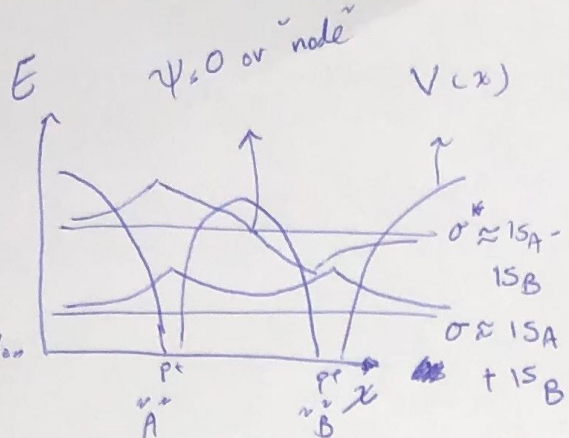 ψ=0 or "node"
E
V(x)
σ* ≈ 1S_A -
1S_B
σ ≈ 1S_A
+ 1S_B
P+
P+
x
"A"
"B"